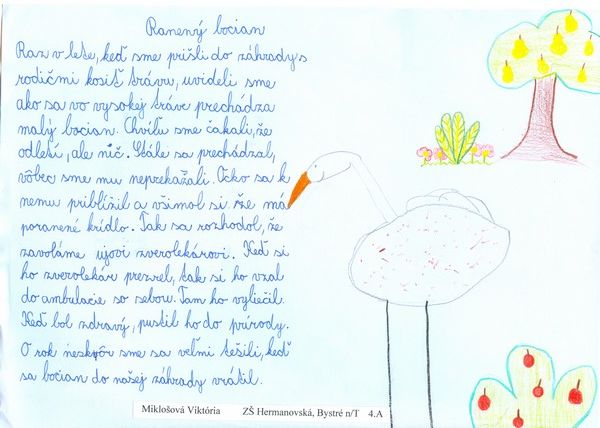 Ranený bocian
Raz v lete, keď sme prišli do záhrady s
rodičmi kosiť trávu, uvideli sme
ako sa vo vysokej tráve prechádza
malý bocian. Chvíľu sme čakali, že
odletí, ale nič. Stále sa prechádzal,
vôbec sme mu neprekažali. Ocko sa k
nemu priblížil a všimol si že má
poranené krídlo. Tak sa rozhodol, že
zavoláme ujovi zverolekárovi. Keď si
ho zverolekár prezrel, tak si ho vzal
do ambulacie so sebou. Tam ho vyliečil.
Keď bol zdravý, pustil ho do prírody.
O rok neskôr sme sa veľmi tešili, keď
sa bocian do našej záhrady vrátil.
Miklošová Viktória ZŠ Hermanovská, Bystré n/T 4.A